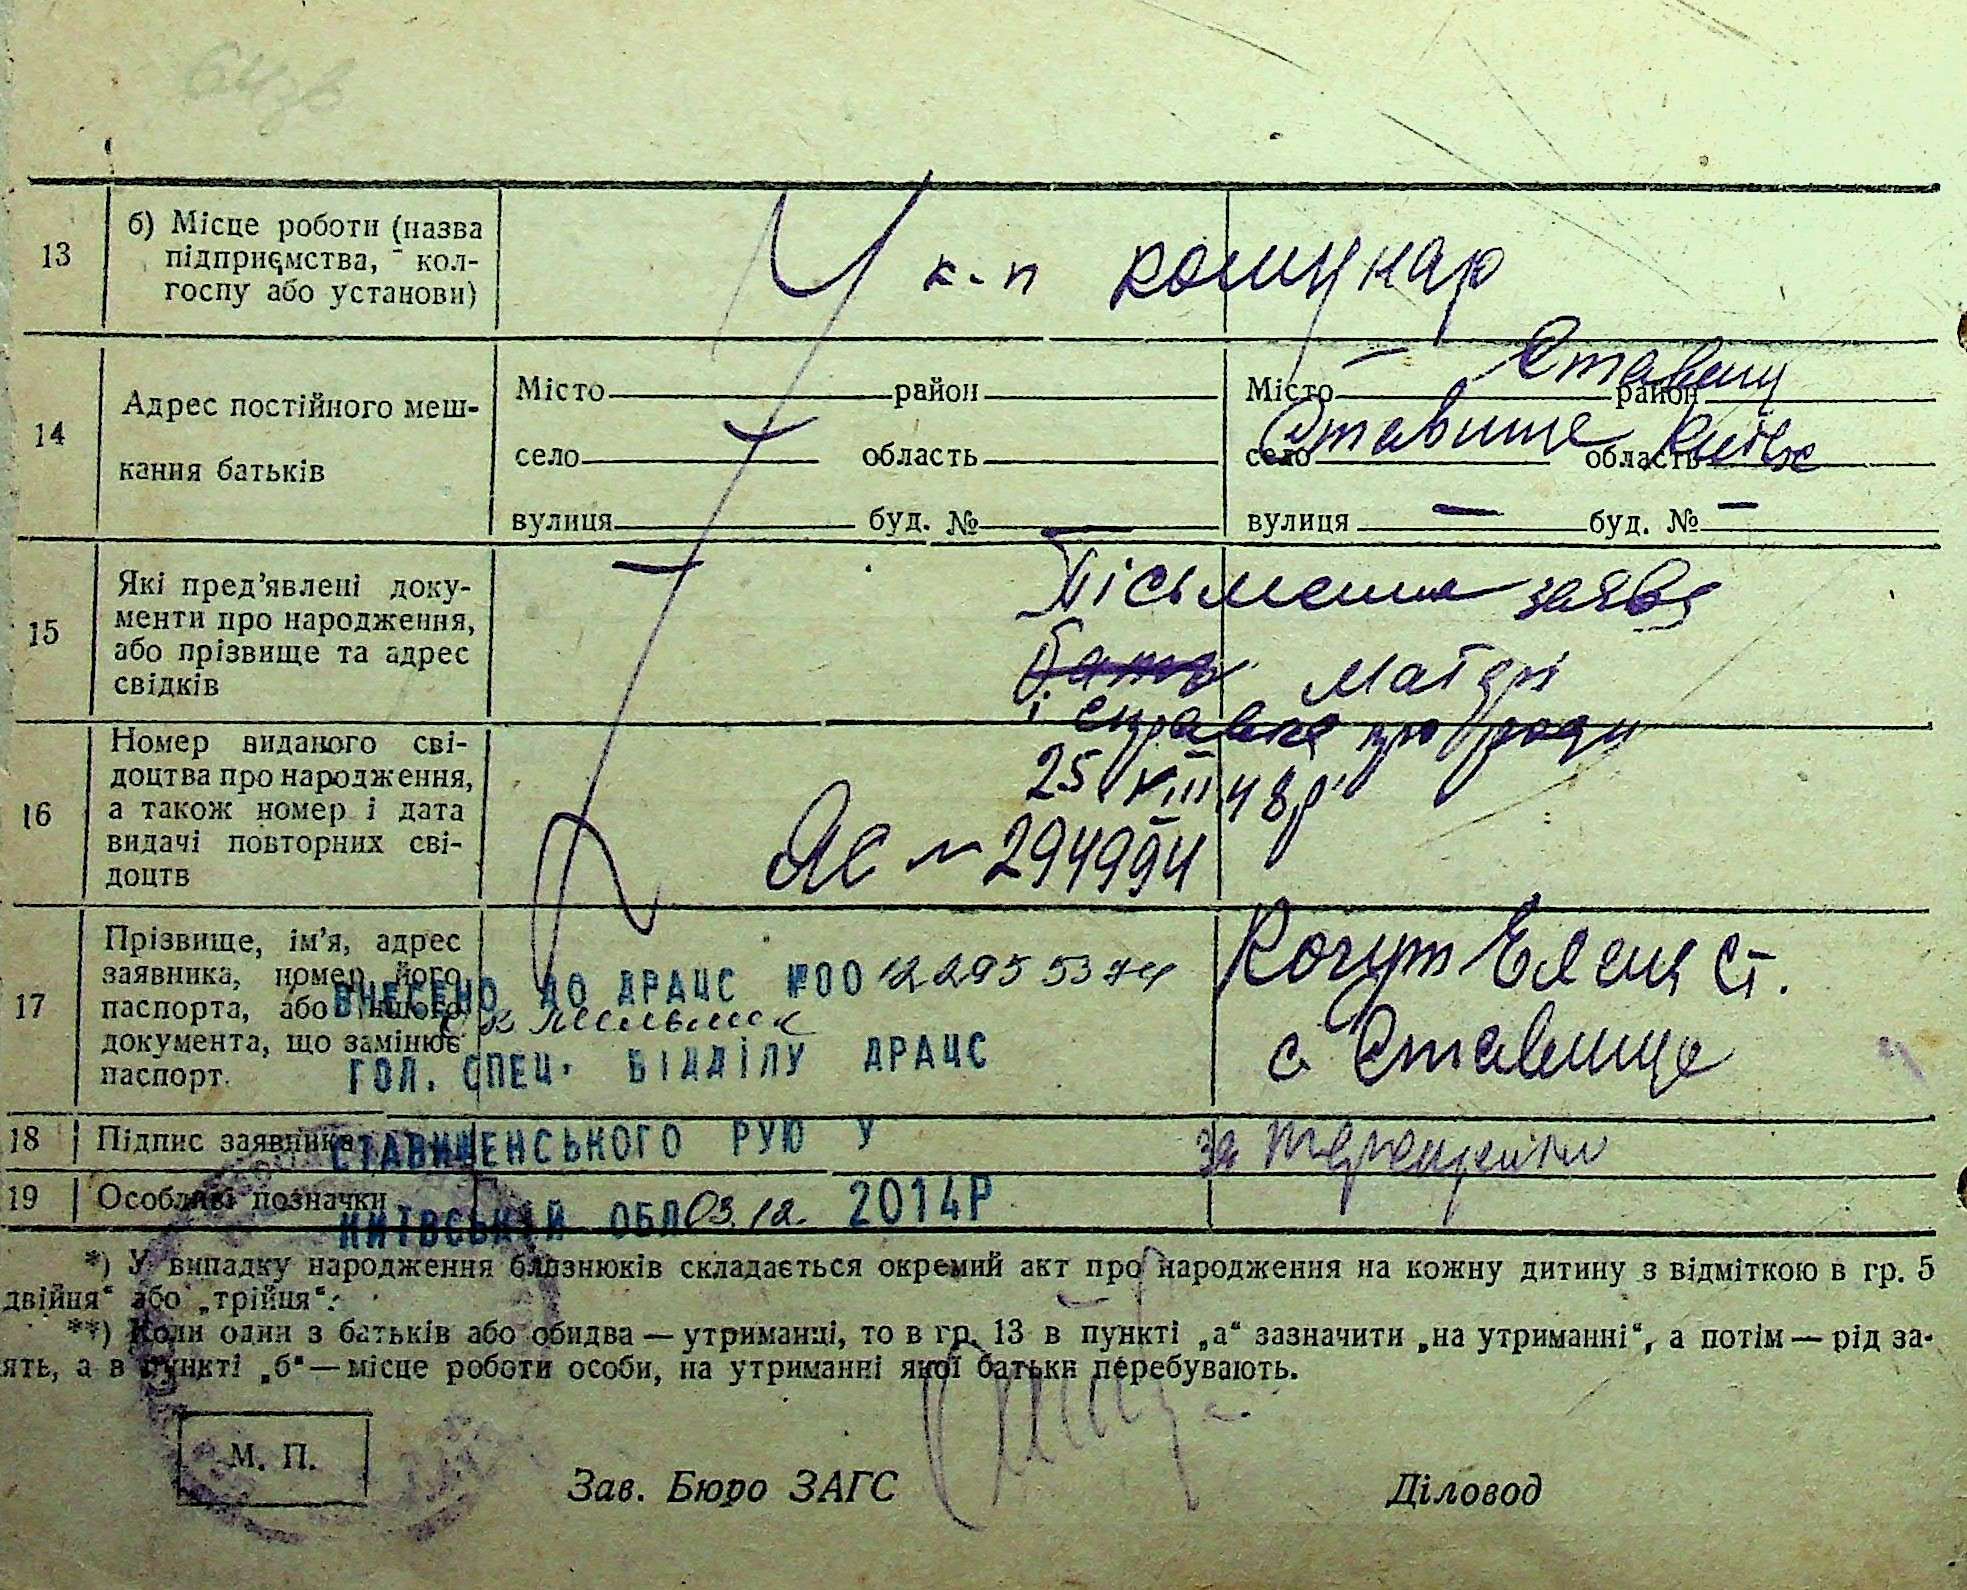 13
б) Місце роботи (назва
підприємства, кол-
госпу або установи)
к-п комунар
14
Адрес постійного меш-
кання батьків
Місто район
село область
вулиця буд. №
Місто — район Ставищ
село Ставище область Київс
вулиця — буд. № —
15
Які пред'явлені доку-
менти про народження,
або прізвище та адрес
свідків
Пісьменна заява
бать матері
і справка про роди
25 VIII 48р
16
Номер виданого сві-
доцтва про народження,
а також номер і дата
видачі повторних сві-
доцтв
ЯС № 294994
17
Прізвище, ім'я, адрес
заявника, номер його
паспорта, або іншого
документа, що замінює
паспорт.
Кочут Елена Ст.
с. Ставище
ВНЕСЕНО ДО ДРАЦС №00 12295574
ГОЛ. СПЕЦ. ВІДДІЛУ ДРАЦС
СТАВИЩЕНСЬКОГО РУЮ У
КИЇВСЬКІЙ ОБЛ 03.12. 2014Р
18
Підпис заявника
за
19
Особливі позначки
*) У випадку народження близнюків складається окремий акт про народження на кожну дитину з відміткою в гр. 5
двійня“ або „трійня“.
**) Коли один з батьків або обидва — утриманці, то в гр. 13 в пункті „а“ зазначити „на утриманні“, а потім — рід за-
ять, а в пункті „б“ — місце роботи особи, на утриманні якої батьки перебувають.
М. П.
Зав. Бюро ЗАГС
Діловод